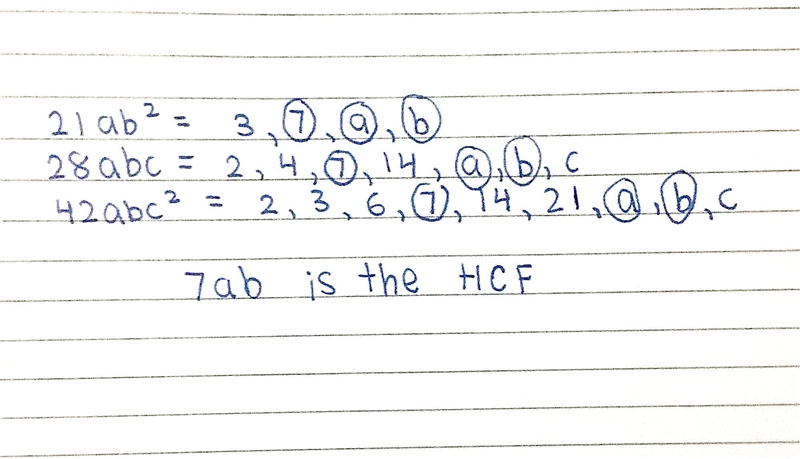 21ab² = 3, 7, a, b
28abc = 2, 4, 7, 14, a, b, c
42abc² = 2, 3, 6, 7, 14, 21, a, b, c
7ab is the HCF